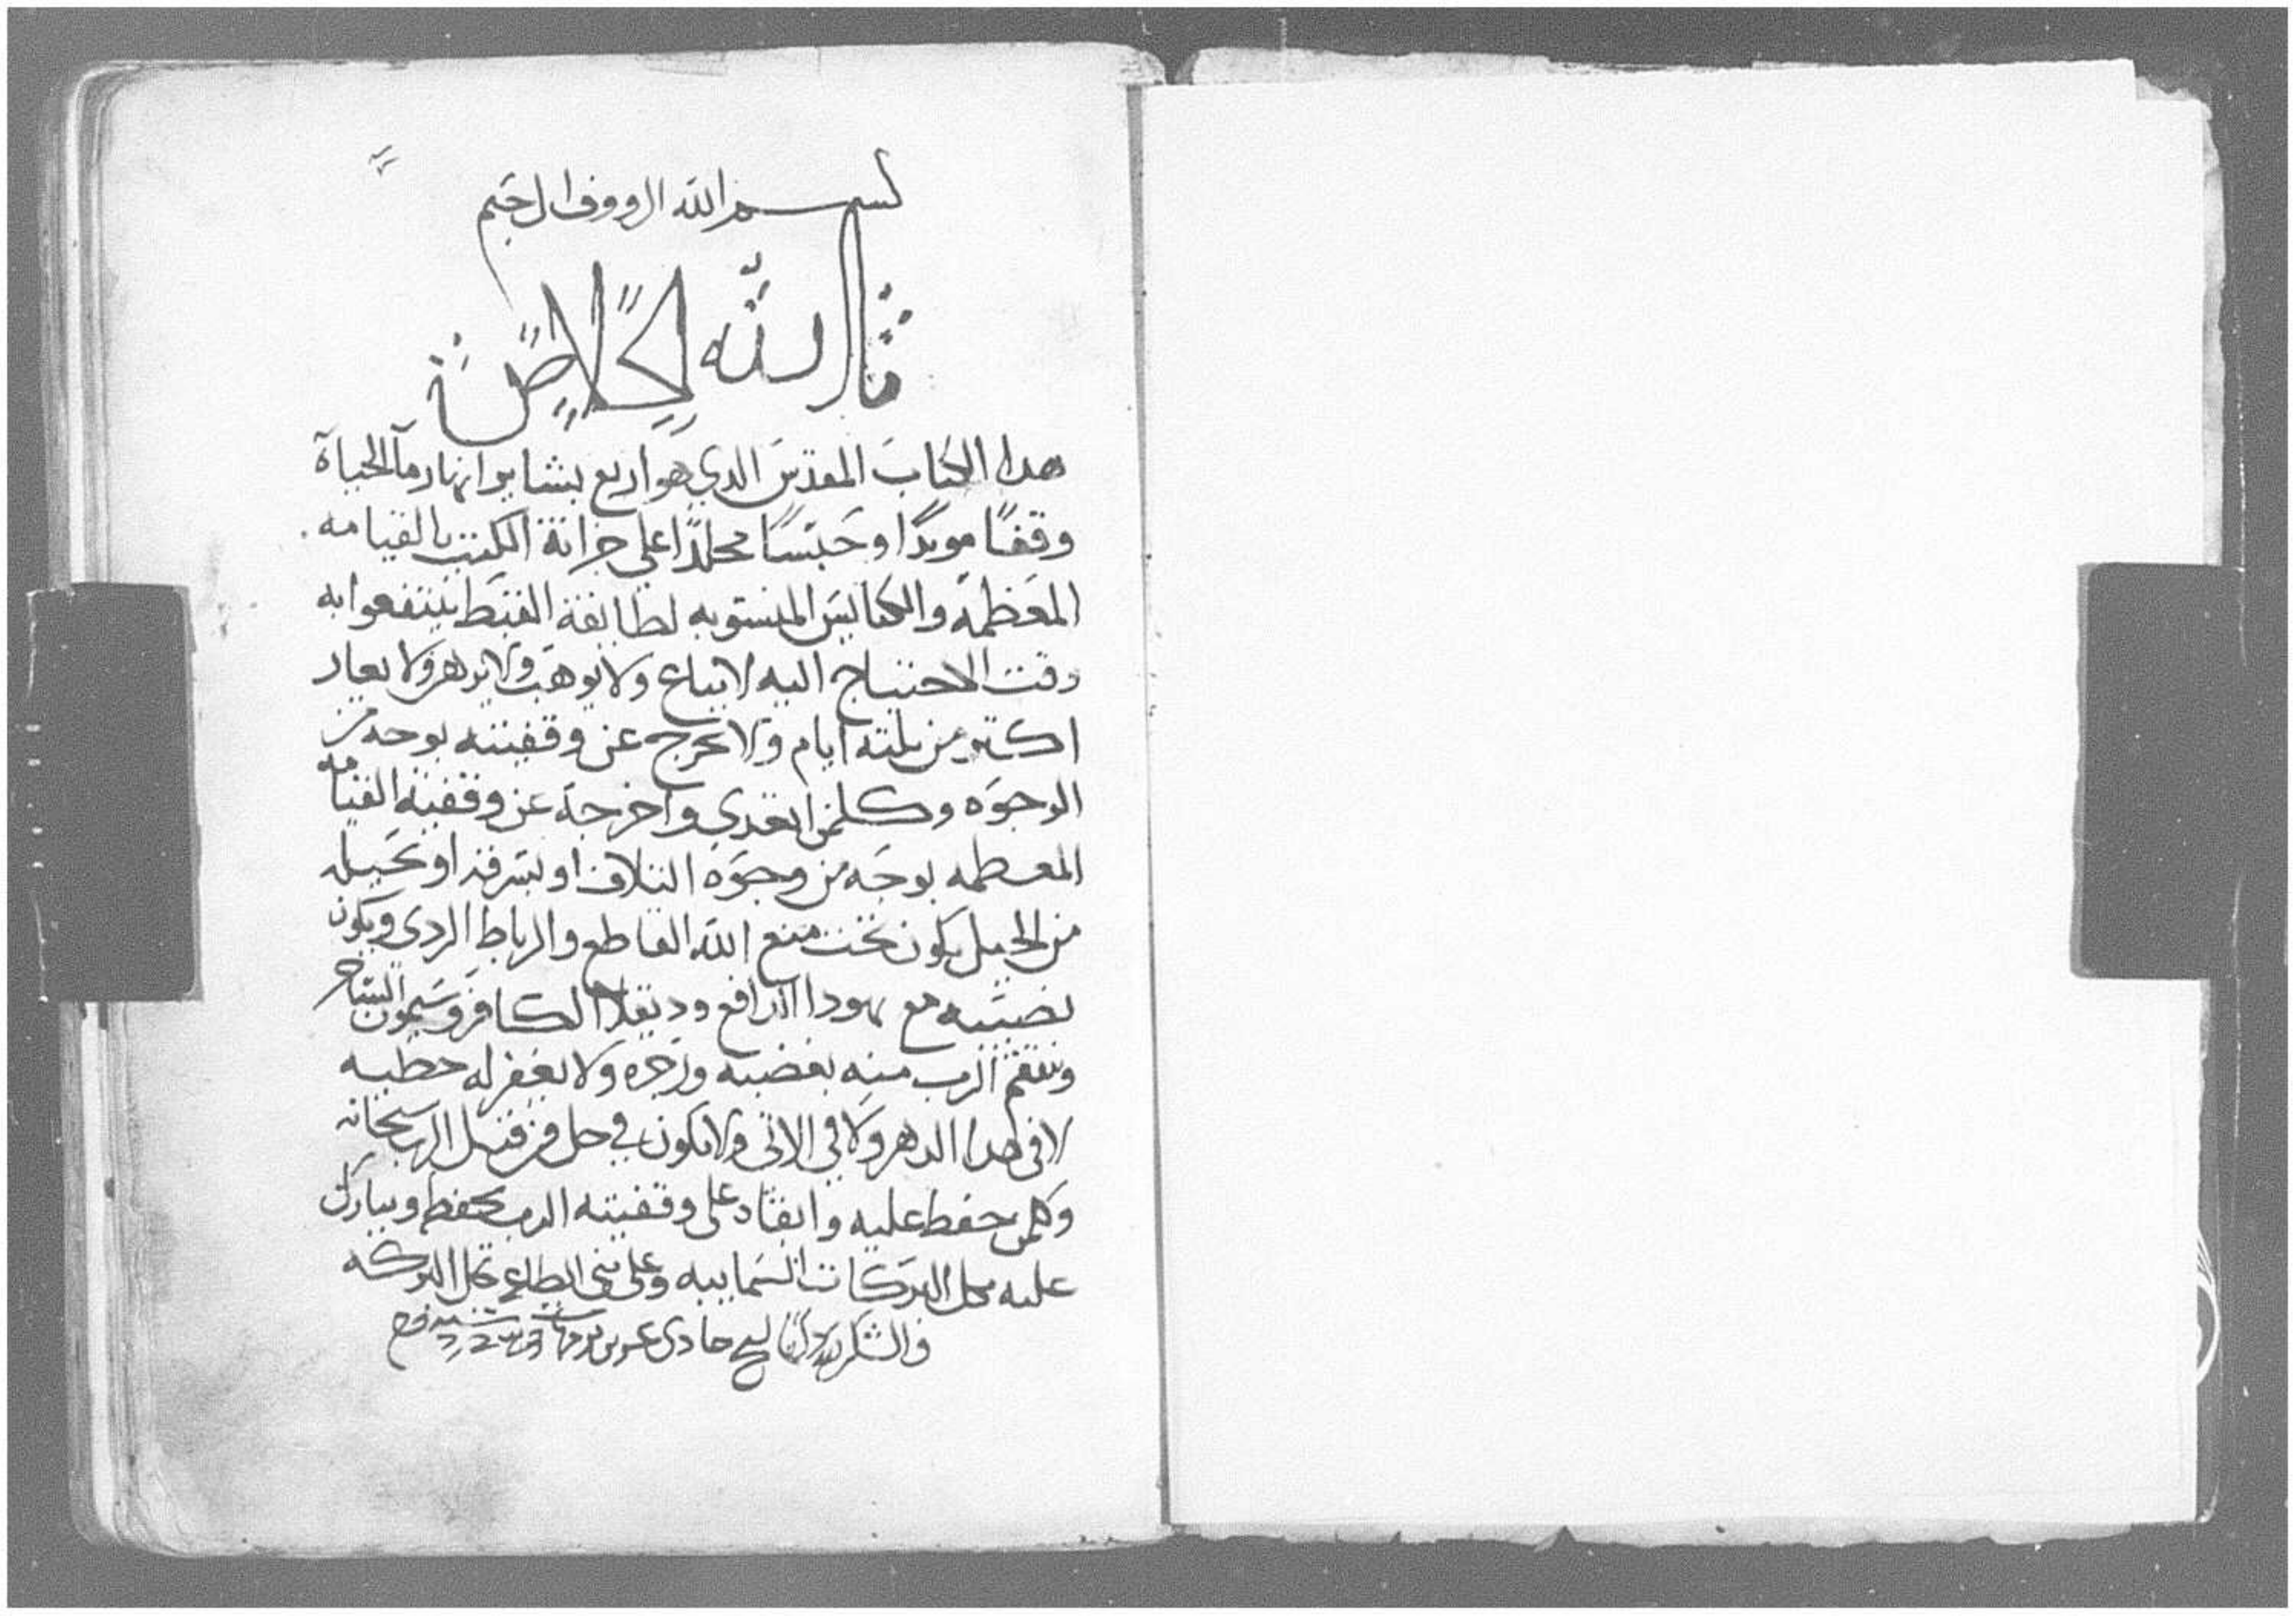 بسم الله الرووف الرحيم
بالله الخلاص
هدا الكتاب المقدس الدي هو اربع بشاير انهار مآ الحياة
وقفًا موبدًا وحبسًا مخلدًا على خزانة الكتب بالقيامه
المعظمه والكنايس المنسوبه لطايفة القبط ينتفعوا به
وقت الاحتياج اليه لا يباع ولا يوهب ولا يرهن ولا يعار
اكتر من تلته ايام ولا يخرج عن وقفيته بوجه من
الوجوه وكلمن اتعدي واخرجه عن وقفية القيامه
المعظمه بوجه من وجوه التلاف او بسرقه او بحيله
من الحيل يكون تحت منع الله القاطع والرباط الردي ويكون
نصيبه مع يهودا الدافع وديقلا الكافر وسيمون الساحر
وينتقم الرب منه بغضبه ورجزه ولا يغفر له خطيه
لا في هدا الدهر ولا في الاتي ولا يكون في حل من قبل الرب سبحانه
وكلمن حفظ عليه وابقاه على وقفيته الرب يحفظه ويبارك
عليه بكل البركات السماييه وعلى بني الطاعه تحل البركه
والشكر لله دايما حادي عشرين برمهات سنه